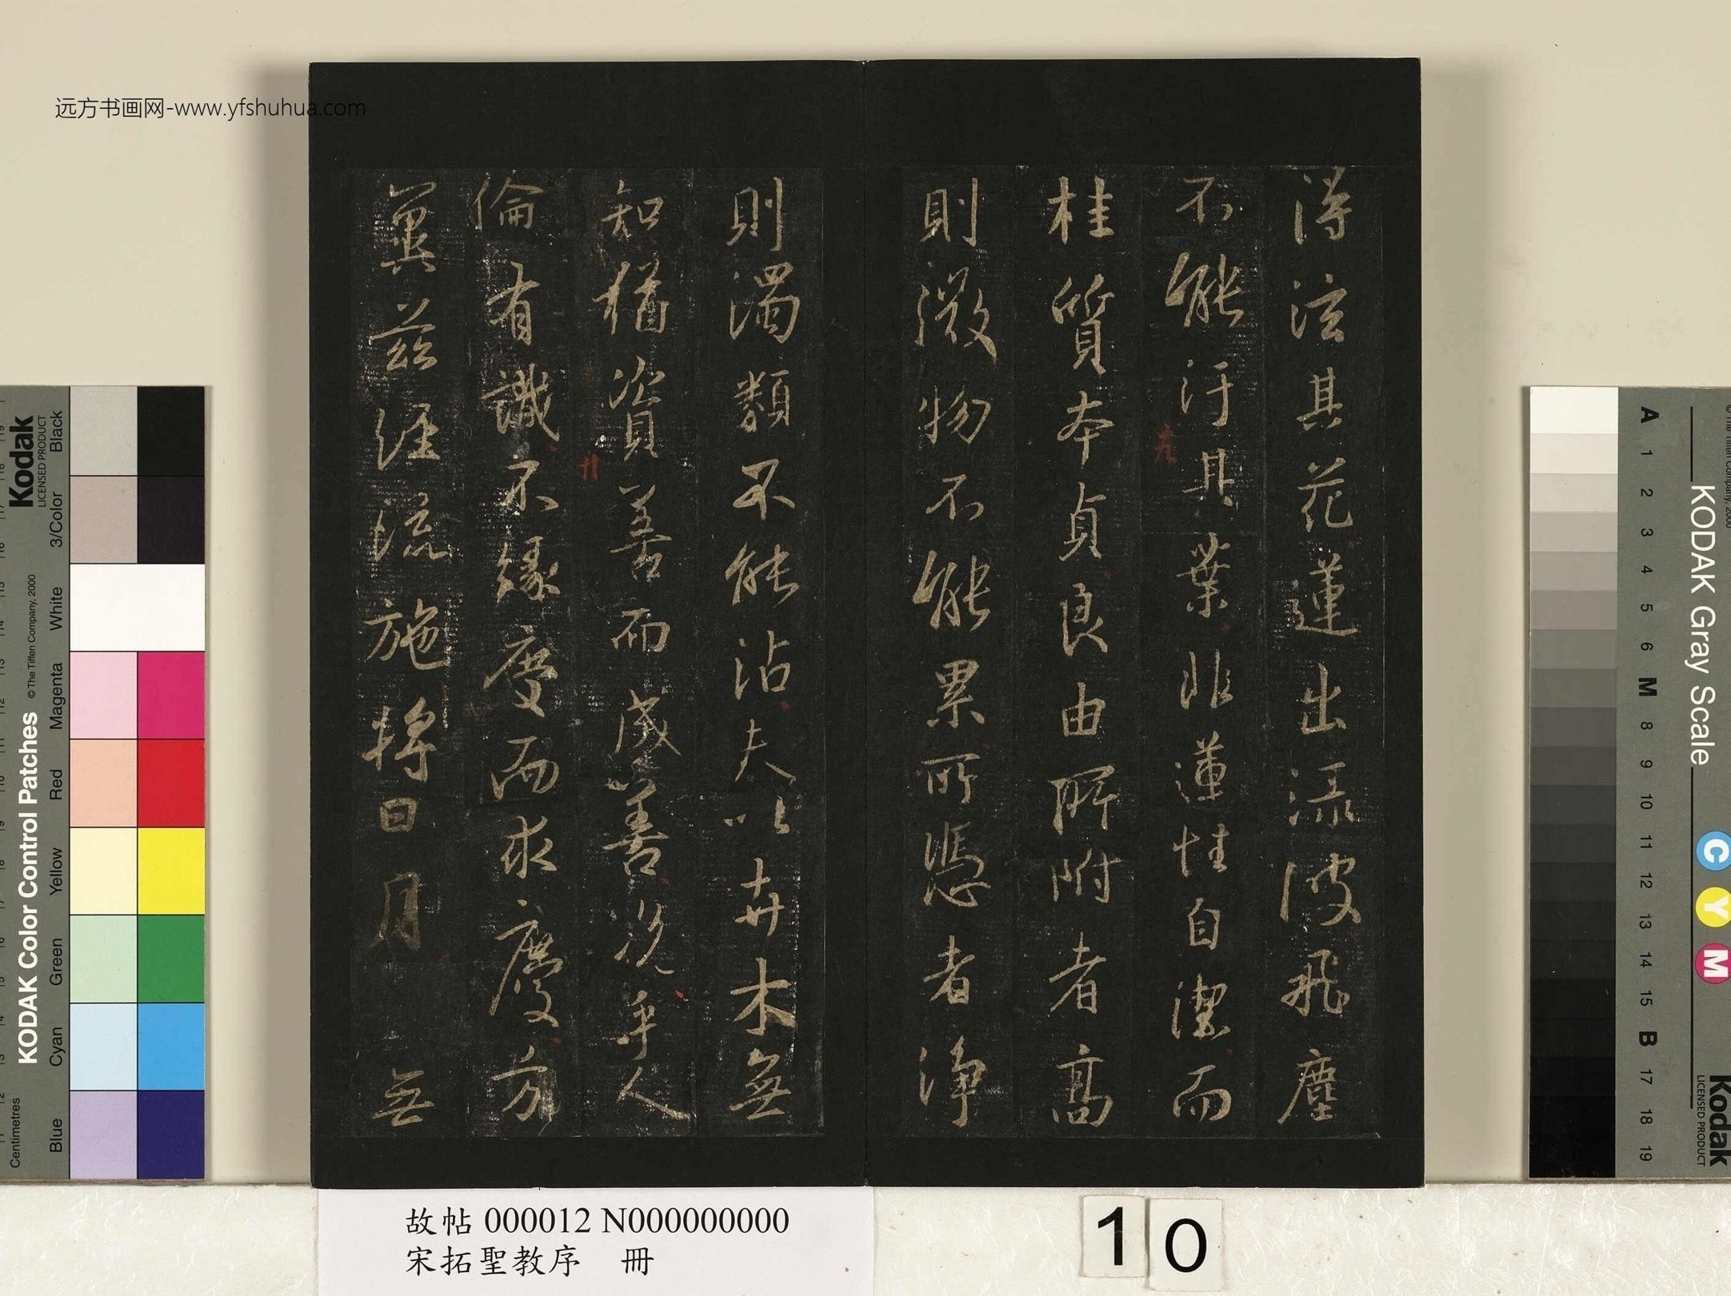 远方书画网-www.yfshuhua.com
得泫其花蓮出淥波飛塵
不能汙其葉非蓮性自潔而
桂質本貞良由所附者高
則微物不能累所憑者淨
則濁類不能沾夫以卉木無
知猶資善而成善況乎人
倫有識不緣慶而求慶方
冀茲經流施將日月無
故帖 000012 N000000000
宋拓聖教序 冊
10
Kodak
LICENSED PRODUCT
KODAK Color Control Patches
© The Tiffen Company, 2000
Centimetres
Blue
Cyan
Green
Yellow
Red
Magenta
White
3/Color
Black
KODAK Gray Scale
C
Y
M
Kodak
LICENSED PRODUCT
A 1 2 3 4 5 6 M 8 9 10 11 12 13 14 15 B 17 18 19